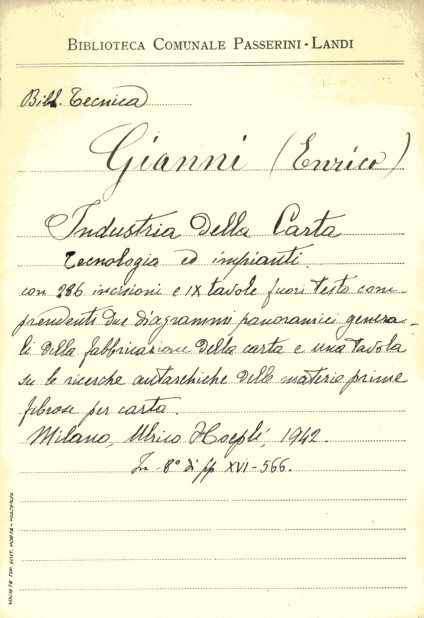 BIBLIOTECA COMUNALE PASSERINI-LANDI
Bibl. Tecnica
Gianni (Enrico)
Industria della Carta
Tecnologia ed impianti
con 286 incisioni e IX tavole fuori testo com-
prendenti due diagrammi panoramici genera-
li della fabbricazione della carta e una tavola
su le ricerche autarchiche delle materie prime
fibrose per carta.
Milano, Ulrico Hoepli, 1942.
In-8° di pp XVI-566.
SOCIETÀ TIP. EDIT. PORTA - PIACENZA